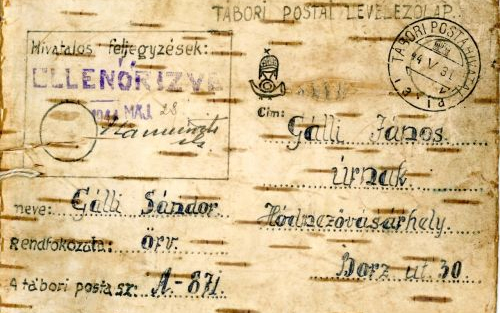 TÁBORI POSTAI LEVELEZŐLAP
Hivatalos feljegyzések:
ELLENŐRIZVE
1944 MÁJ. 28
TÁBORI POSTAHIVATAL
44 V 31
Cím: Gálli János
úrnak
Hódmezővásárhely
Borz ut 30.
neve: Gálli Sándor
Rendfokozata: őrv.
A tábori posta sz: A-871.